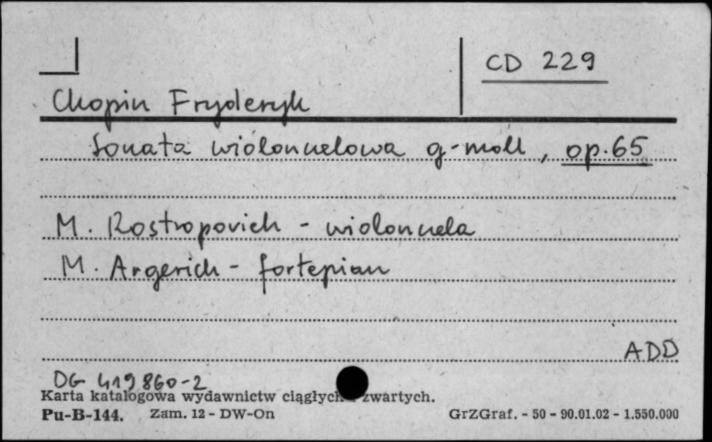 CD 229
Chopin Fryderyk
Sonata wiolonczelowa g-moll, op. 65
M. Rostropovich - wiolonczela
M. Argerich - fortepian
ADD
DG 419 860-2
Karta katalogowa wydawnictw ciągłych zwartych.
Pu-B-144. Zam. 12 - DW-On GrZGraf. - 50 - 90.01.02 - 1.550.000